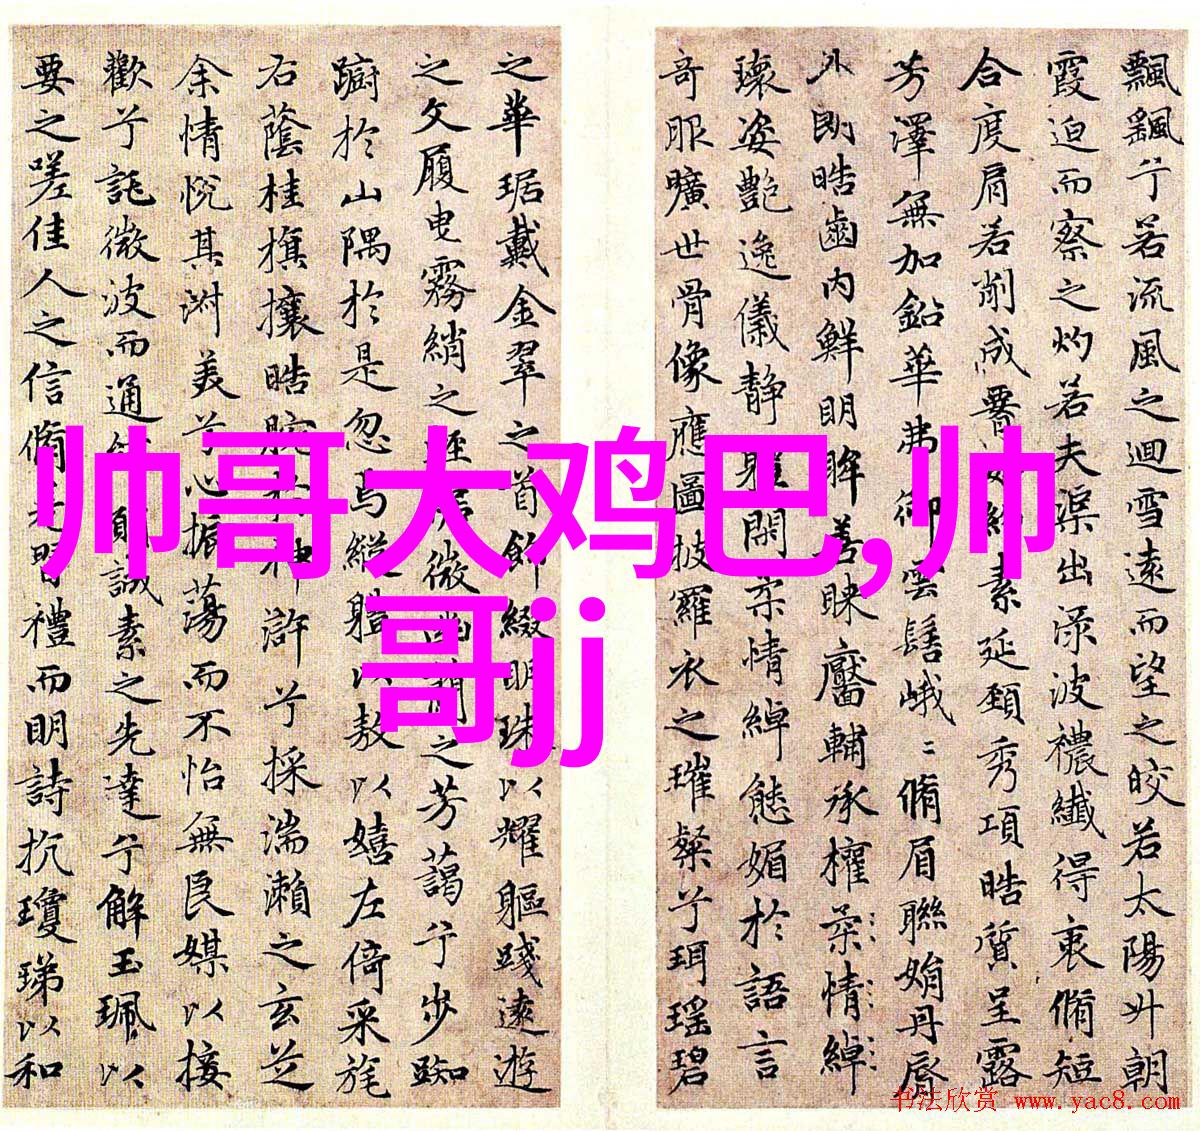 飄飖兮若流風之迴雪遠而望之皎若太陽升朝
霞迫而察之灼若夫渠出渌波禯纖得衷脩短
合度肩若削成素延頚秀項皓質呈露
芳澤無加鉛華弗御雲髻峨〻脩眉聯娟丹脣
外朗皓齒內鮮明眸善睞靨輔承權柔情綽
瓌姿艶逸儀静軆閑柔情綽態媚於語言
奇服曠世骨像應圖披羅衣之璀粲兮珥瑶碧
之華琚戴金翠之首飾綴明珠以耀軀踐遠遊
之文履曳霧綃之輕芳藹兮步踟
躕於山隅於是忽焉縱軆以敖以嬉左倚采旄
右蔭桂旗攘皓腕滸兮採湍瀨之玄芝
余情悅其淑美兮心振蕩而不怡無良媒以接
歡兮託微波而通誠素之先達兮解玉珮以
要之嗟佳人之信脩禮而明詩抗瓊珶以和
帅哥大鸡巴,帅
哥jj
书法欣赏 www.yac8.com